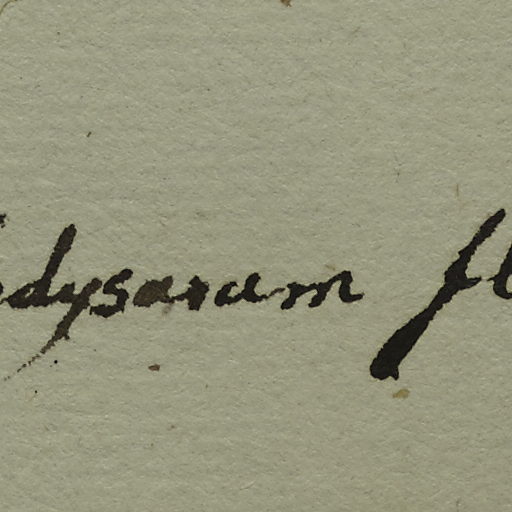 edysarum fl